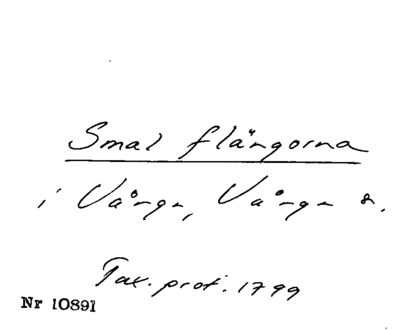 Smal flängorna
i Vånga, Vånga s.
Tax. prot. 1799
Nr 10891